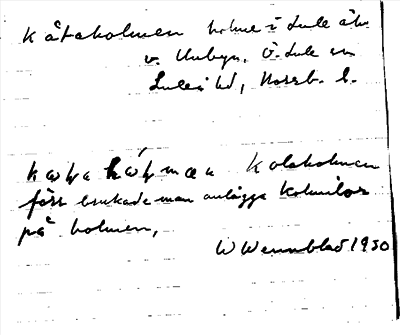 Kåtaholmen holme i Lule älv
v. Unbyn, Ö. Lule sn
Luleå td, Norrb. l.
Kolaholmen
förr brukade man anlägga kolmilor
på holmen,
W Wennblad 1930